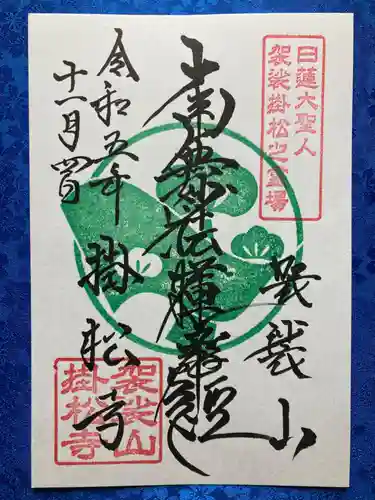 日蓮大聖人
袈裟掛松之霊場
袈裟山
南無妙法蓮華経
令和五年
十一月四日
掛松寺
袈裟山
掛松寺